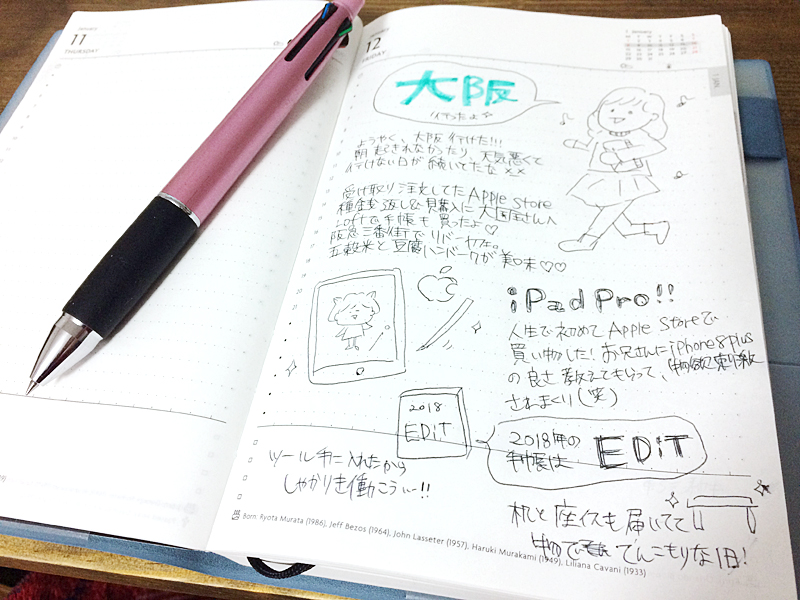 11
THURSDAY
12
FRIDAY
1 January
大阪
行ったよ☆
ようやく、大阪行けた!!!
朝起きれなかったり、天気悪くて
行けない日が続いてたな××
受け取り注文してたApple Store
種銭返し&見購入に大国主さんへ
Loftで手帳も買ったよ♡
阪急三番街でリバーカフェ。
五穀米と豆腐ハンバーグが美味♡♡
iPad Pro!!
人生で初めてApple Storeで
買い物した!お兄さんにiPhone8plus
の良さ教えてもらって、
されまくり(笑)
2018
EDiT
2018年の
手帳は EDiT
ツール手に入れたから
しゃかりき働こうぃー!!
机と座イスも届いてて
てんこもりな1日!
Born: Ryota Murata (1986), Jeff Bezos (1964), John Lasseter (1957), Haruki Murakami (1949), Liliana Cavani (1933)